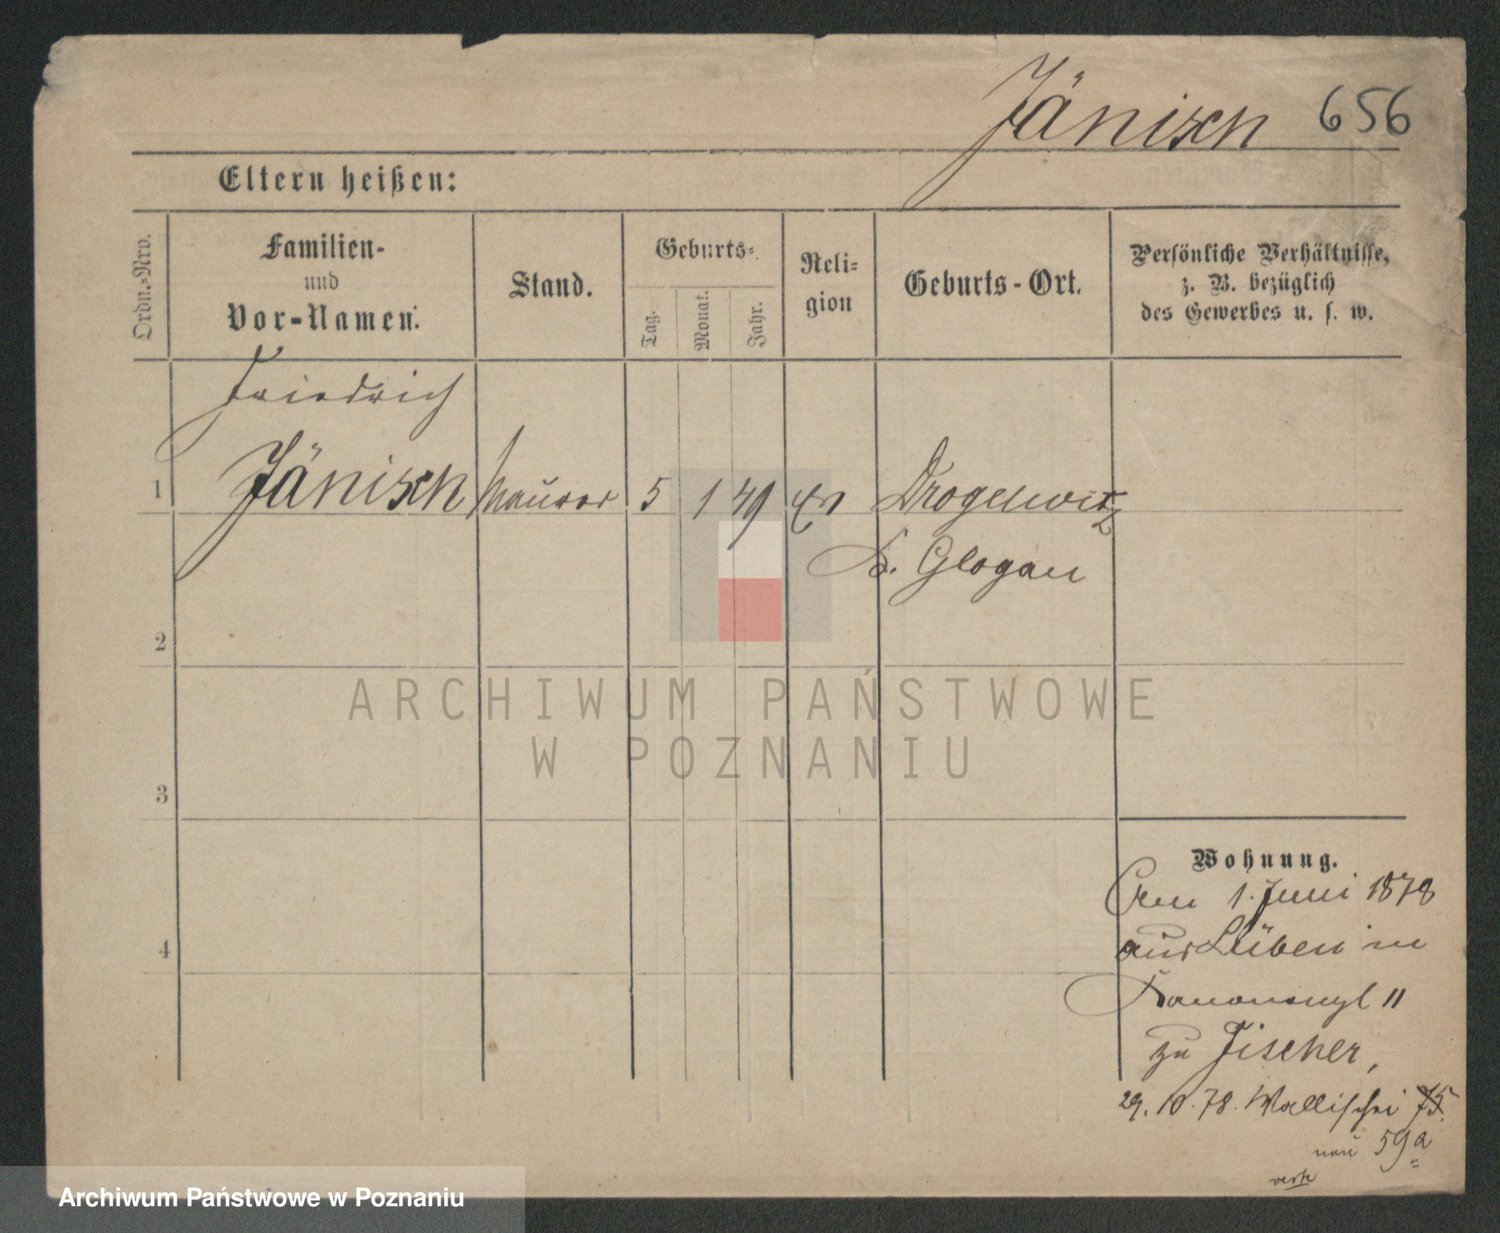 Jänisch 656
Eltern heißen:
Ordn.-Nro.
Familien-
und
Vor-Namen.
Stand.
Geburts-
Tag.
Monat.
Jahr.
Reli-
gion
Geburts-Ort.
Persönliche Verhältnisse,
z. B. bezüglich
des Gewerbes u. s. w.
Friedrich
1 Jänisch Maurer 5 1 49 ev Drogelwitz
K. Glogau
2
ARCHIWUM PAŃSTWOWE
W POZNANIU
3
Wohnung.
4
Am 1. Juni 1878
aus Lüben in
Kanonengl 11
zu Fischer,
29. 10. 78. Wallischei 75.
neu 59a
Archiwum Państwowe w Poznaniu